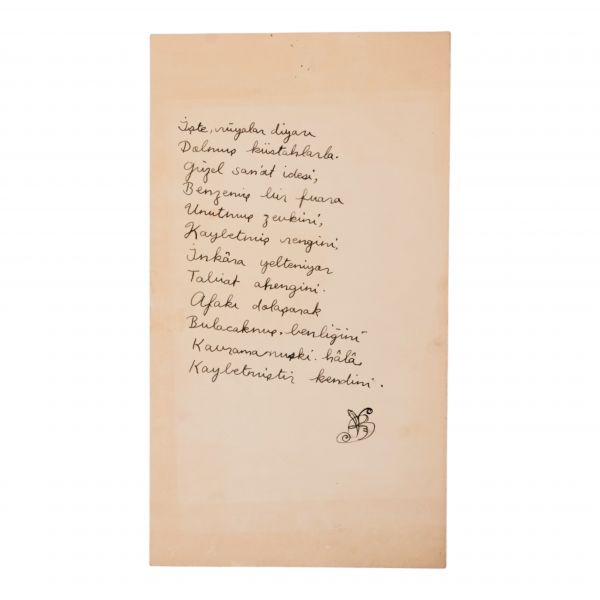 İşte, rüyalar diyarı
Dolmuş küstahlarla.
Güzel san'at idesi,
Benzemiş bir fuara
Unutmuş zevkini,
Kaybetmiş rengini,
İnkâra yelteniyor
Tabiat ahengini.
Afakı dolaşarak
Bulacakmış, benliğini
Kavramamışki hâlâ,
Kaybetmiştir kendini.